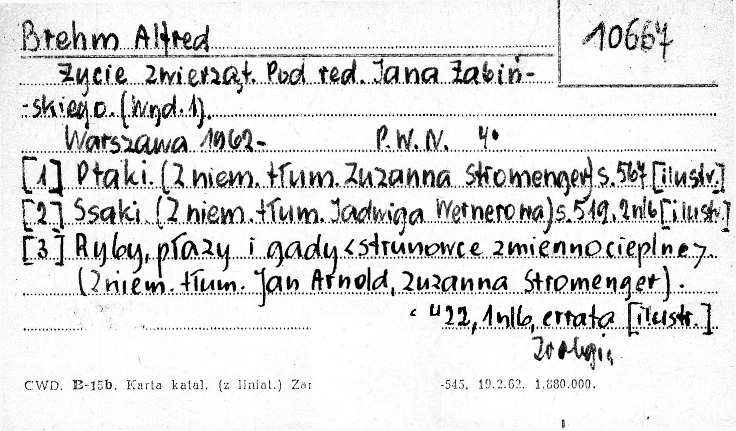 Brehm Alfred
10667
Życie zwierząt. Pod red. Jana Żabiń-
-skiego. (Wyd. 1).
Warszawa 1962- P.W.N. 4°
[1] Ptaki. (Z niem. tłum. Zuzanna Stromenger) s. 567 [ilustr.]
[2] Ssaki (Z niem. tłum. Jadwiga Wernerowa) s. 519, 2 nlb [ilustr.]
[3] Ryby, płazy i gady <strunowce zmiennocieplne>.
(Z niem. tłum. Jan Arnold, Zuzanna Stromenger).
22, 1 nlb, errata [ilustr.]
Zoologia
CWD. B-15b. Karta katal. (z liniat.) Za -545. 19.2.62. 1.880.000.